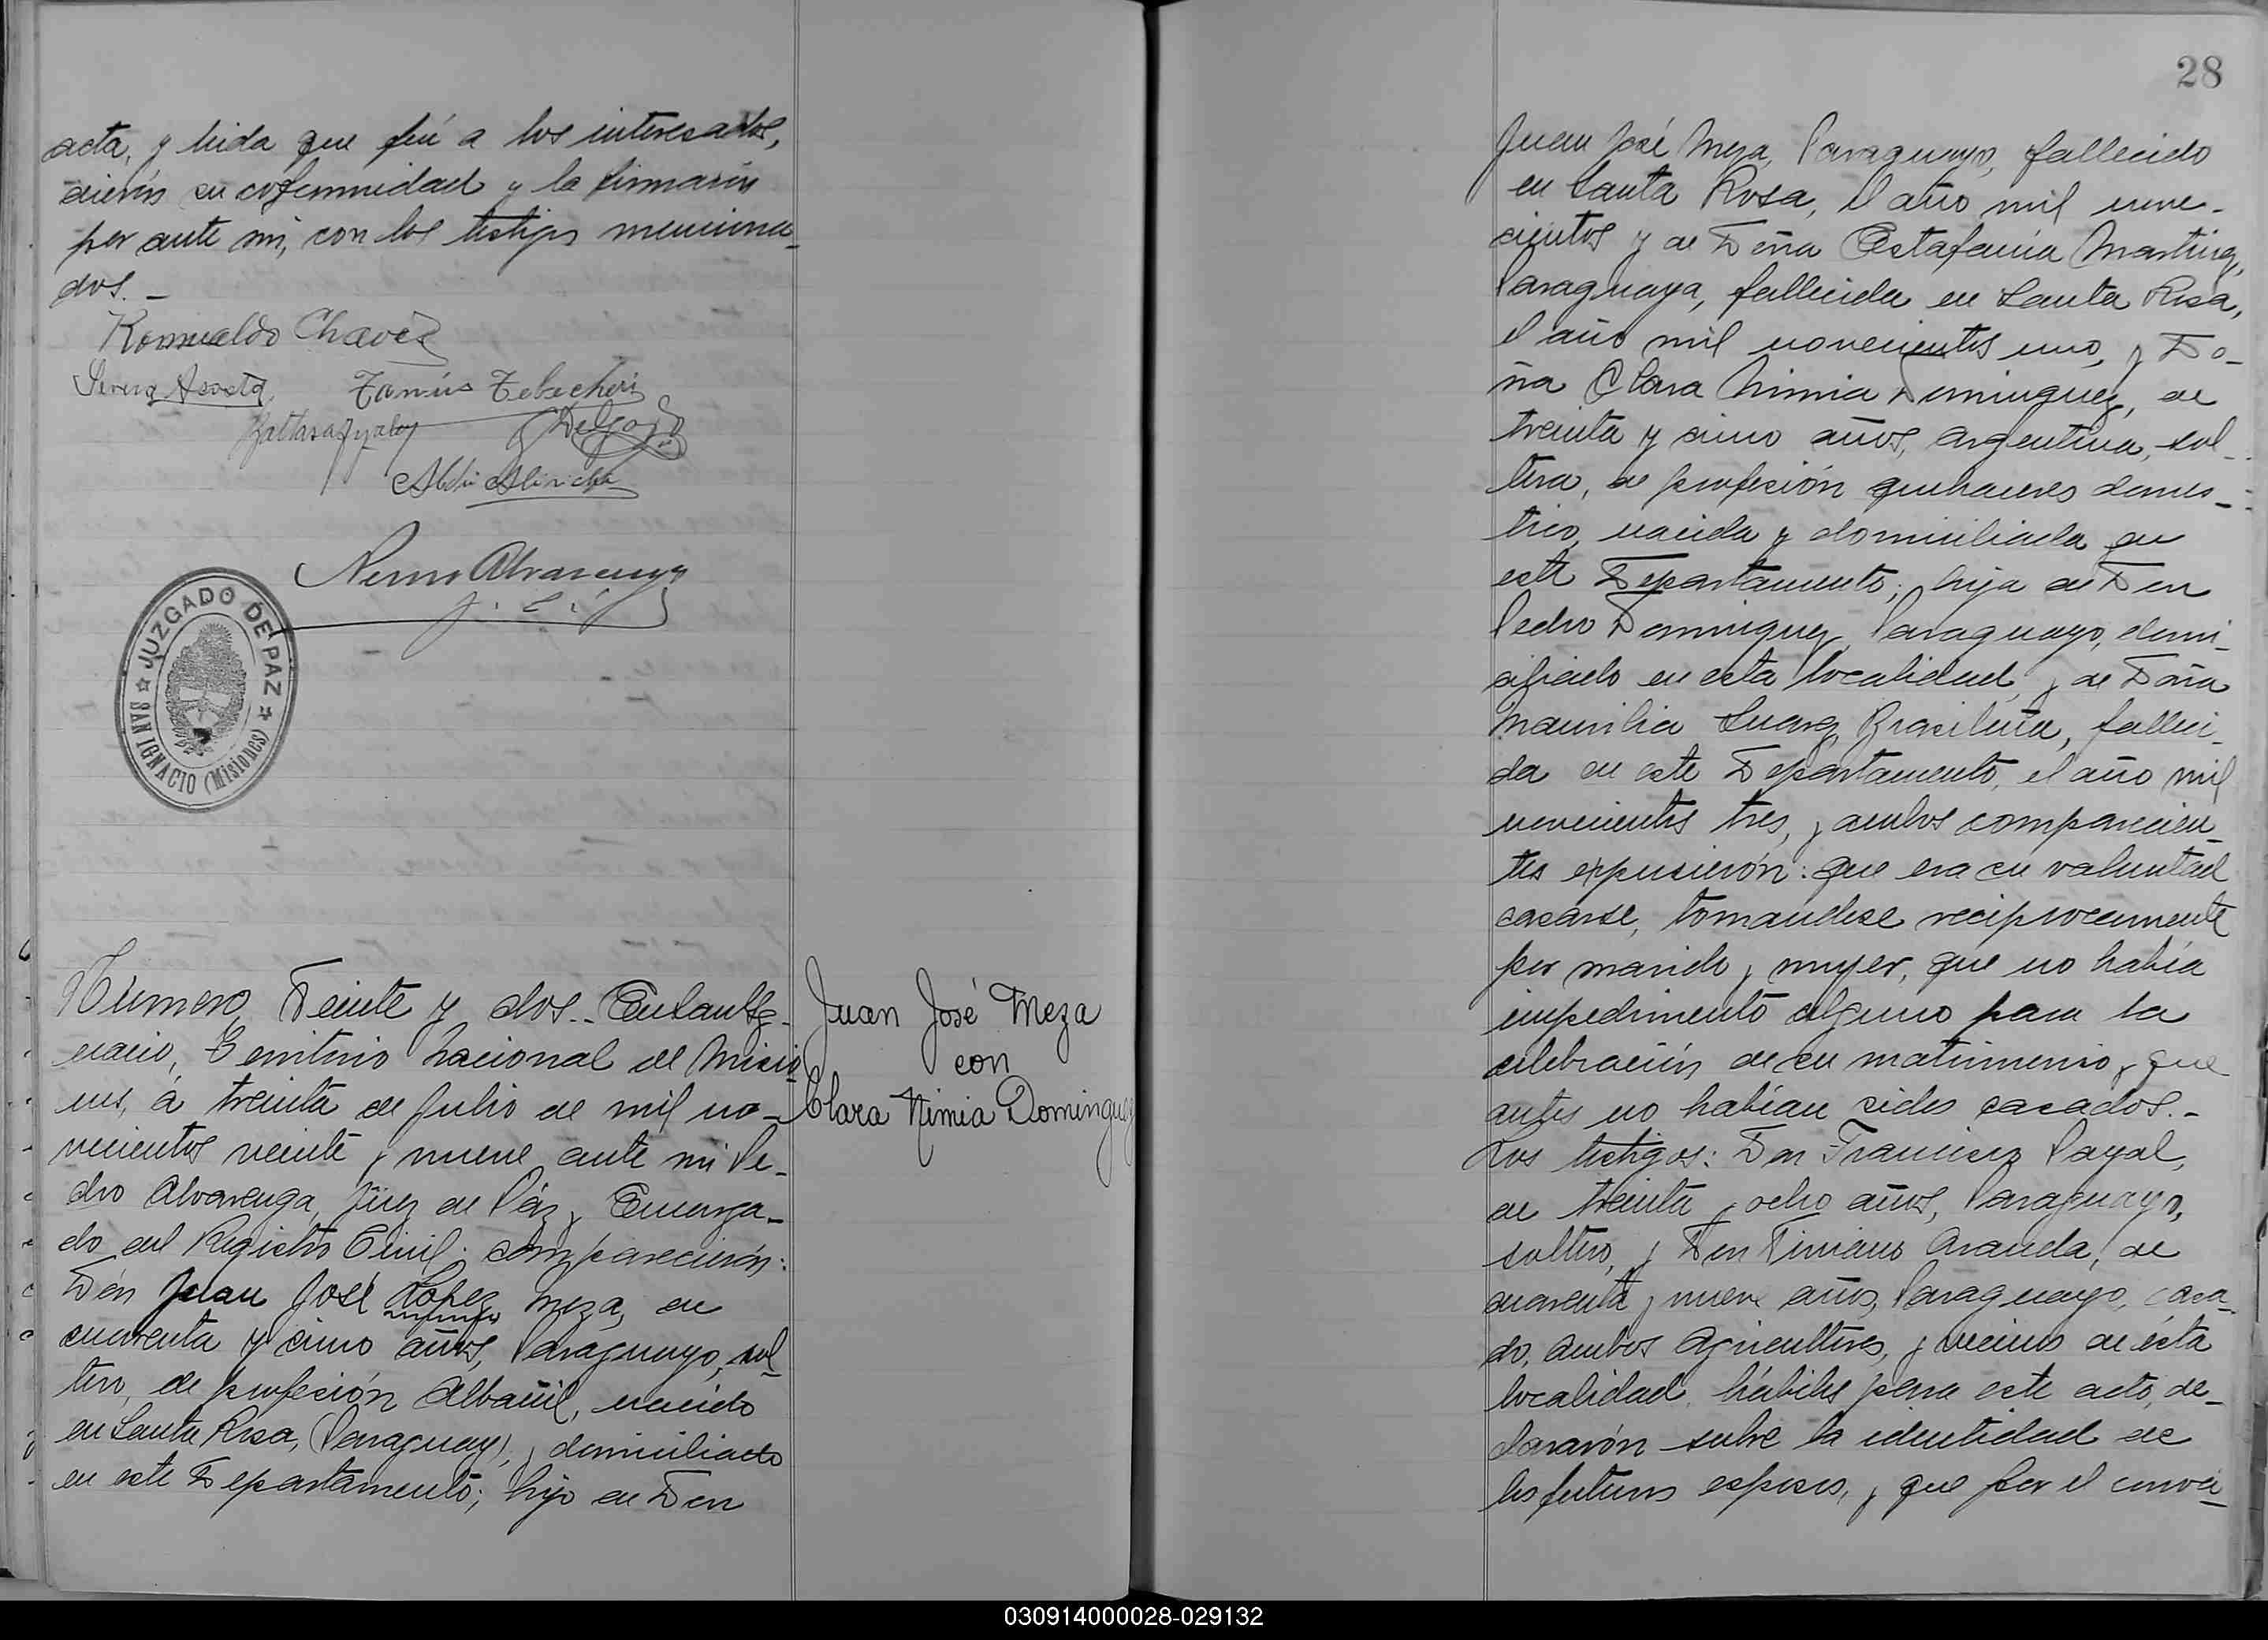 acta, y leida que fué a los interesados,
dierón su cofermidad y la firmarón
por ante mi, con los testigos menciona-
dos. -
Romualdo Chavez
Acosta
Delgado
Alvarenga
J. P.
JUZGADO DE PAZ
SAN IGNACIO (Misiones)
Número Veinte y dos.- En
nario, Territorio Nacional de Misio
nes, á treinta de Julio de mil no-
vecientos veinte y nueve ante mi Pe-
dro Alvarenga, Juez de Páz y Encarga-
do del Registro Civil; comparecierón:
Dón Juan José López Meza, de
cuarenta y cinco años, Paraguayo, sol-
tero, de profesión Albañil, nacido
en Santa Rosa, (Paraguay), y domiciliado
en este Departamento; hijo de Don
Juan José Meza
con
Clara Nimia Dominguez
28
Juan José Meza, Paraguayo, fallecido
en Santa Rosa, el año mil nove-
cientos y de Doña Estafania Martinez,
Paraguaya, fallecida en Santa Rosa,
el año mil novecientos uno, y Do-
ña Clara Nimia Dominguez, de
treinta y cinco años, argentina, sol-
tera, de profesión quehaceres domes-
tico, nacida y domiciliada en
este Departamento; hija de Don
Pedro Dominguez, Paraguayo, domi-
ciliado en esta localidad, y de Doña
Maurilia Suarez, Brasileña, falleci-
da en este Departamento, el año mil
novecientos tres, y ambos comparecien-
tes expusierón: que era su valuntad
casarse, tomandose reciprocamente
por marido y mujer, que no había
impedimento alguno para la
celebración de su matrimonio y que
antes no habían sidos casados.-
Los testigos: Don Francisco Payal,
de treinta y ocho años, Paraguayo,
soltero, y Don Aranda, de
cuarenta y nueve años, Paraguayo, casa-
do, ambos Agricultores, y vecinos de ésta
localidad, hábiles para este acto, de-
clararón sobre la identidad de
los futuros esposos, y que por el conoci-
030914000028-029132